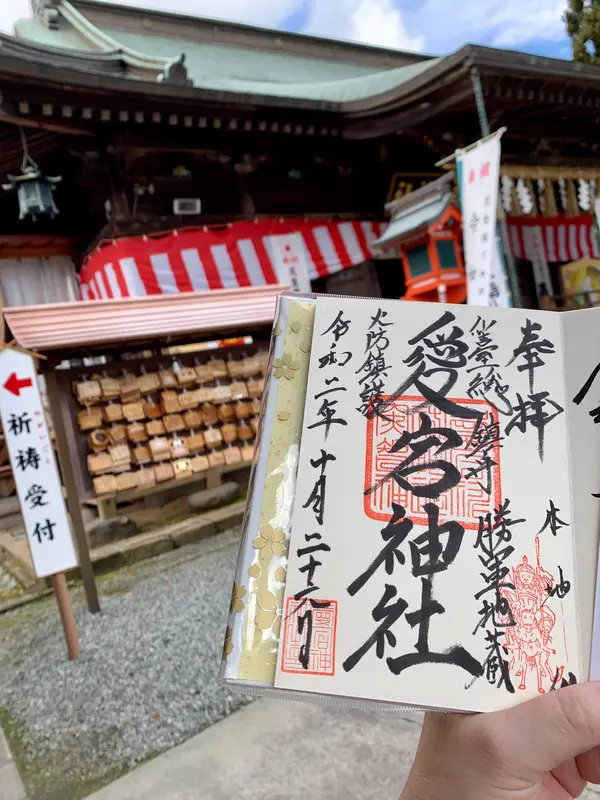 奉拝
本地仏
仙臺総鎮守
勝軍地蔵
愛宕神社
火防鎮護
令和二年十月二十
祈祷受付